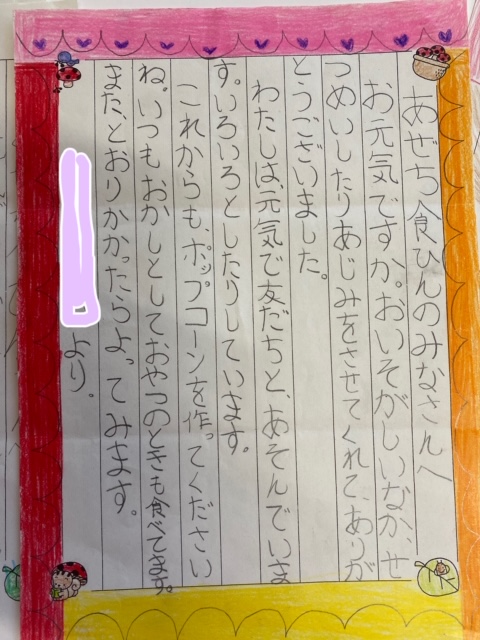 あぜち食ひんのみなさんへ
お元気ですか。おいそがしいなか、せ
つめいしたりあじみをさせてくれて、ありが
とうございました。
わたしは、元気で友だちと、あそんでいま
す。いろいろとしたりしています。
これからも、ポップコーンを作ってください
ね。いつもおかしとしておやつのときも食べてます。
また、とおりかかったらよってみます。
より。